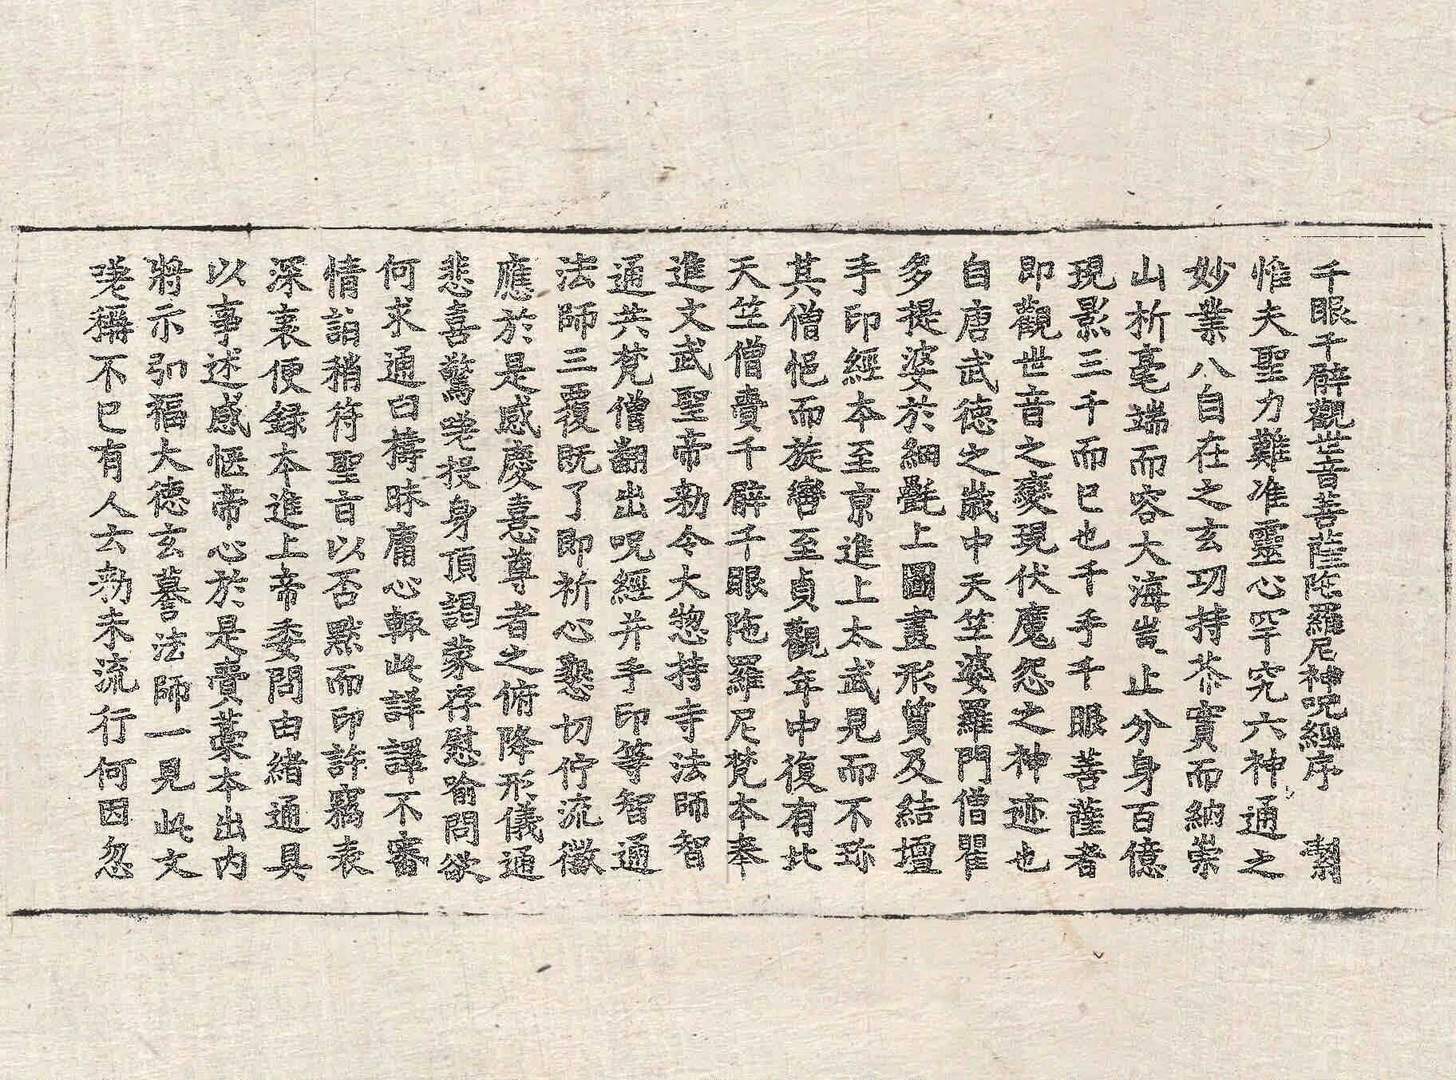 千眼千臂觀世音菩薩陁羅尼神呪經序 㔟
惟夫聖力難准靈心罕究六神通之
妙業八自在之玄功持芥實而納崇
山析毫端而容大海豈止分身百億
現影三千而已也千手千眼菩薩者
即觀世音之變現伏魔怨之神迹也
自唐武德之歲中天竺婆羅門僧瞿
多提婆於細㲲上圖畫形質及結壇
手印經本至京進上太武見而不珎
其僧悒而旋轡至貞觀年中復有北
天竺僧賷千臂千眼陁羅尼梵本奉
進文武聖帝勑令大惣持寺法師智
通共梵僧翻出呪經并手印等智通
法師三覆既了即祈心懇切佇流徵
應於是感慶憙尊者之俯降形儀通
悲喜驚嗟投身頂謁蒙存慰喻問欲
何求通曰擣昧庸心輙此詳譯不審
情詣稍符聖旨以否默而印許竊表
深衷便録本進上帝委問由緒通具
以事述感愜帝心於是賷藁本出内
將示弘福大德玄暮法師一見此文
嗟稱不已有人云勑未流行何因忽